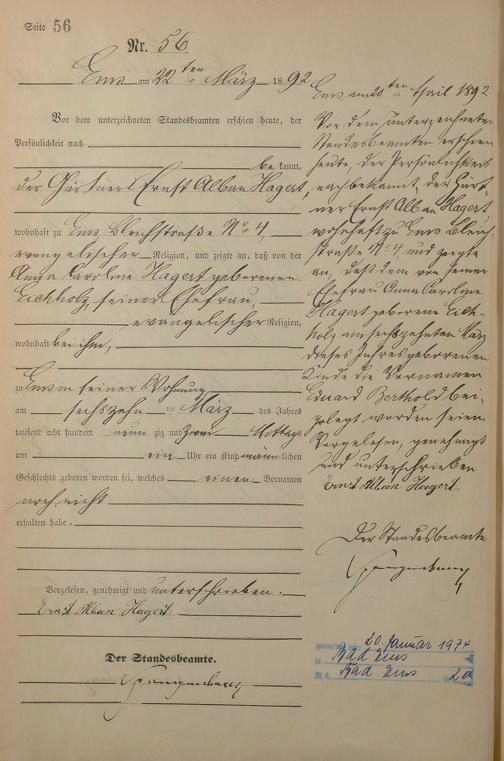 Seite 56
Nr. 56
Ems am 22ten März 1892
Vor dem unterzeichneten Standesbeamten erschien heute, der
Persönlichkeit nach
bekannt,
der Gärtner Ernst Alban Hagert,
wohnhaft zu Ems, Bleichstraße No 4,
evangelischer Religion, und zeigte an, daß von der
Anna Caroline Hagert geborenen
Eichholz, seiner Ehefrau,
evangelischer Religion,
wohnhaft bei ihm,
zu Ems in seiner Wohnung
am sechszehn ten März des Jahres
tausend acht hundert neunzig und zwei Mittags
um ein Uhr ein Kind männlichen
Geschlechts geboren worden sei, welches einen Vornamen
noch nicht
erhalten habe.
Vorgelesen, genehmigt und unterschrieben.
Ernst Alban Hagert.
Der Standesbeamte.
Ems am ten April 1892
Vor dem unterzeichneten
Standesbeamten erschien
heute, der Persönlichkeit
nach bekannt, der Gärt-
ner Ernst Alban Hagert,
wohnhaft zu Ems Bleich-
straße No 4, und zeigte
an, daß dem von seiner
Ehefrau Anna Caroline
Hagert geborene Eich-
holz am sechszehnten März
dieses Jahres geborenen
Kinde die Vornamen
Eduard Berthold bei-
gelegt worden seien.
Vorgelesen, genehmigt
und unterschrieben
Ernst Alban Hagert.
Der Standesbeamte
20. Januar 1974
Bad Ems
Bad Ems 20